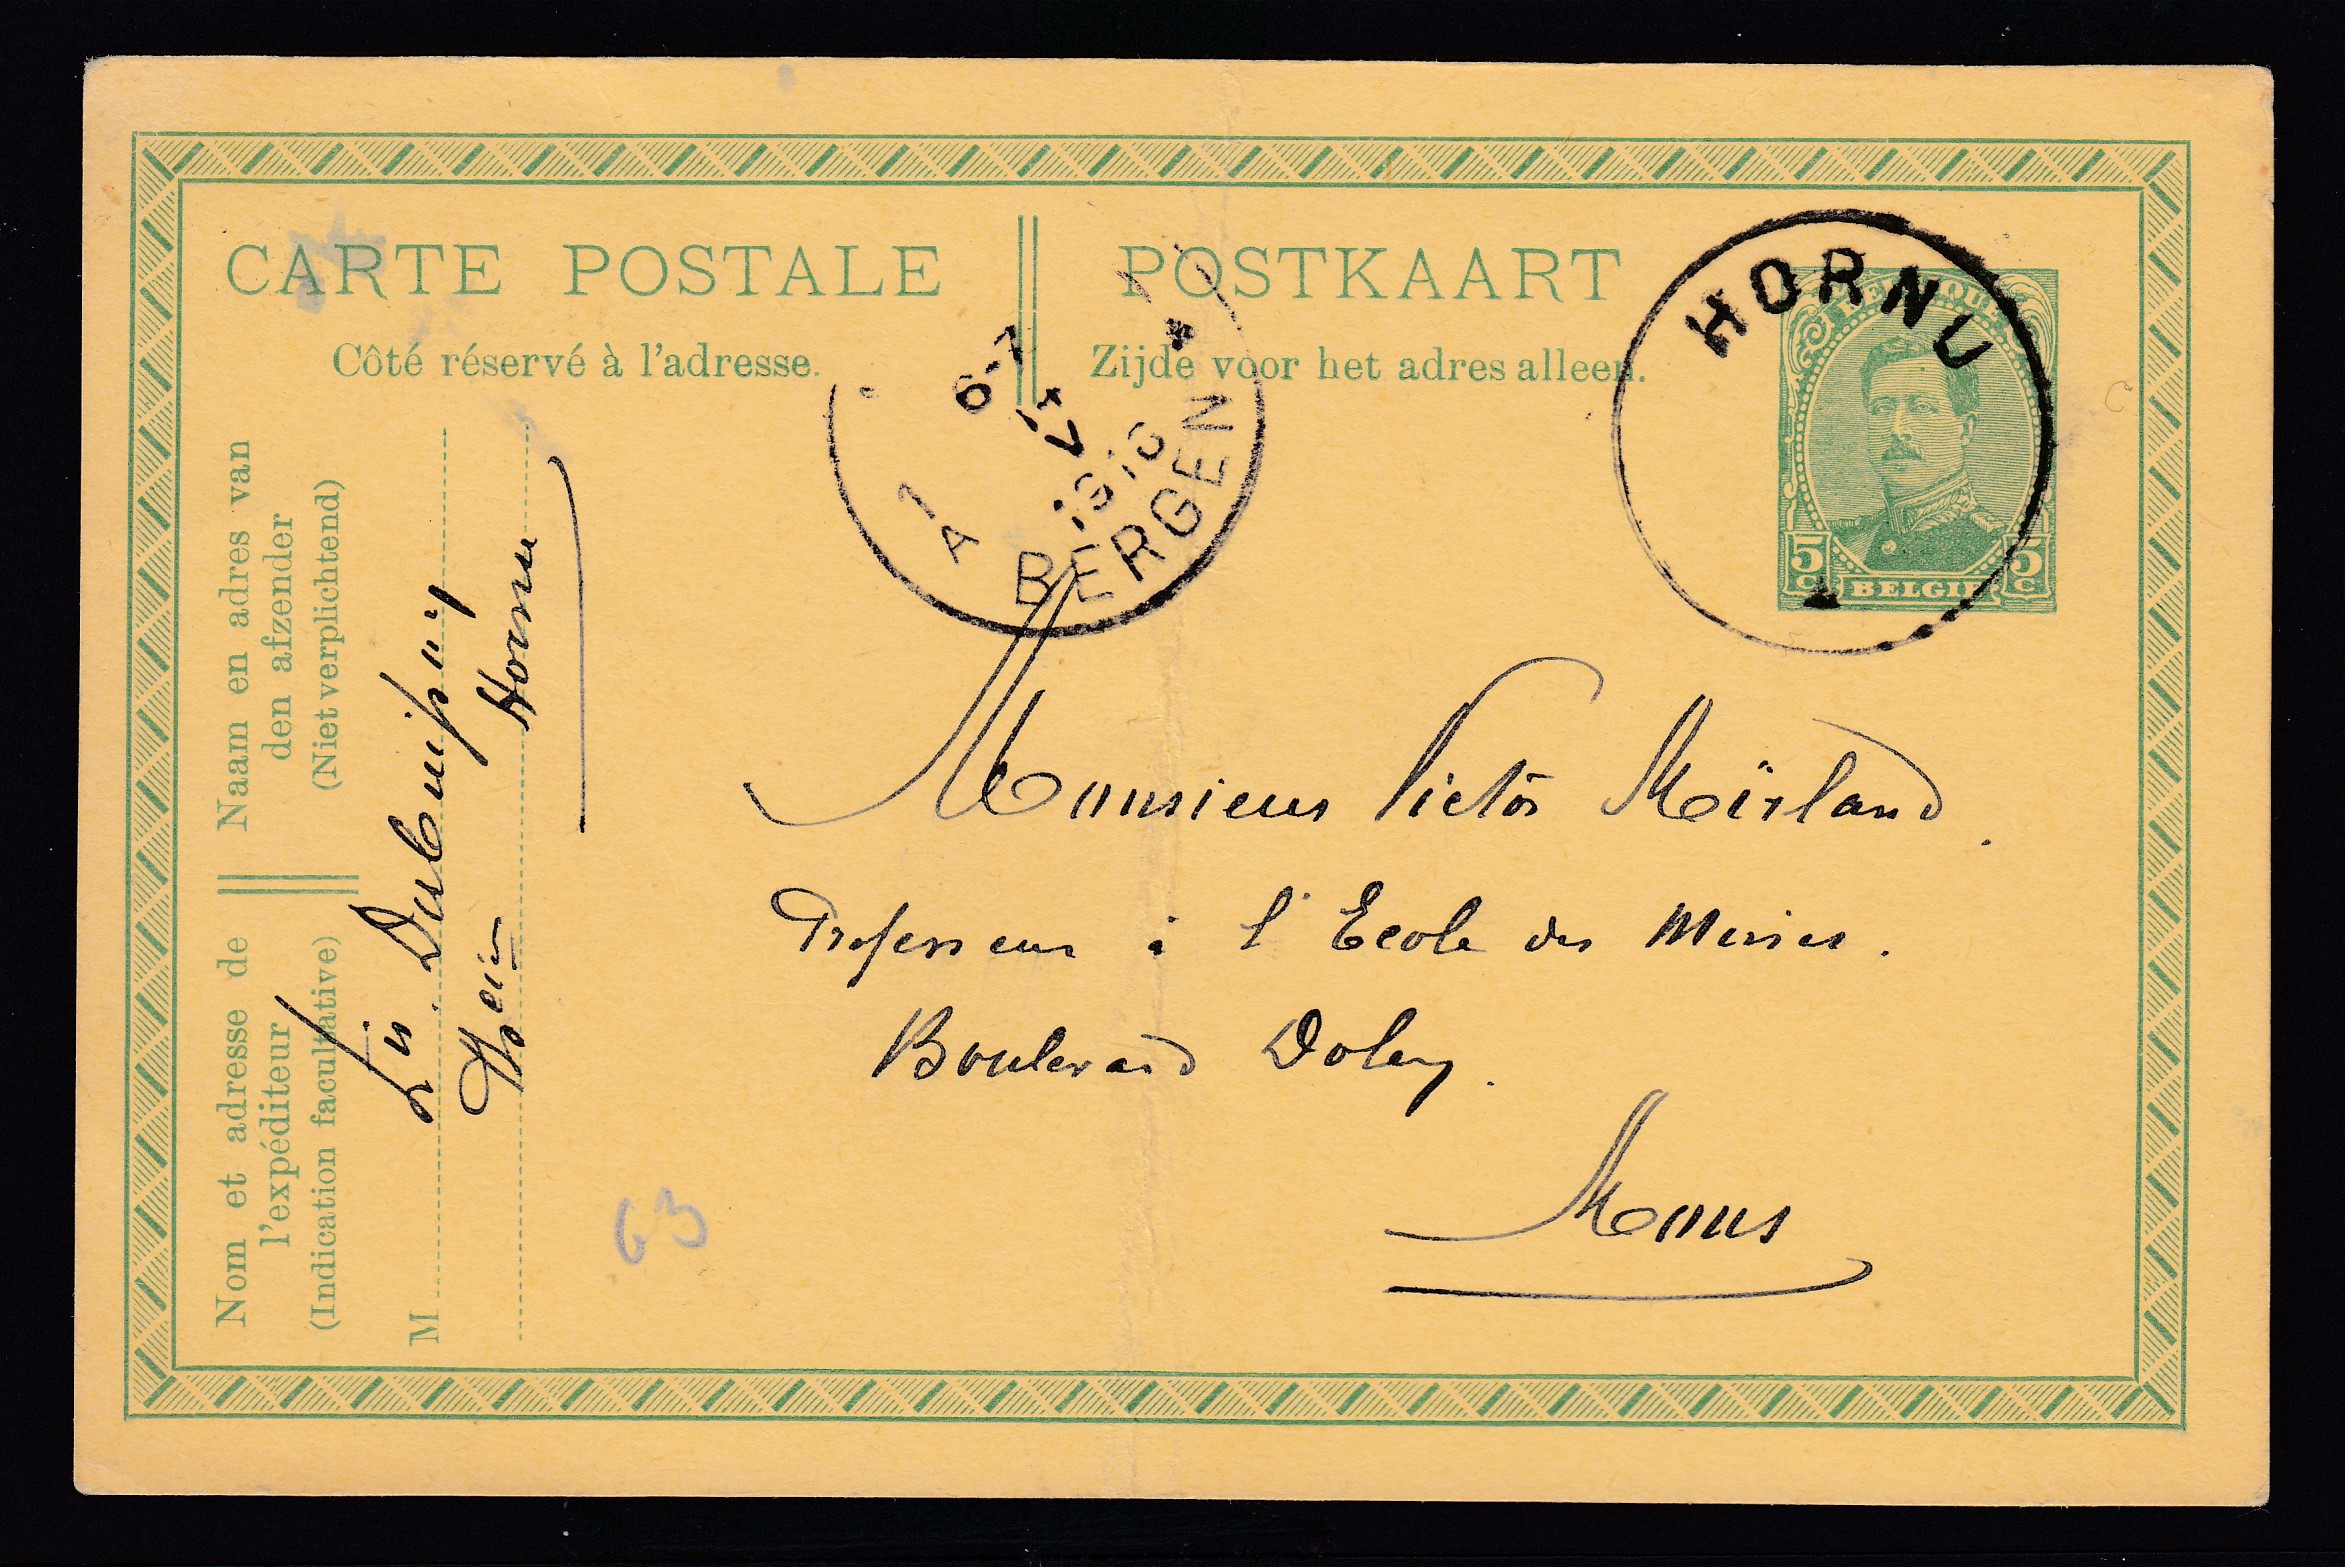 CARTE POSTALE
Côté réservé à l'adresse.
POSTKAART
Zijde voor het adres alleen.
HORNU
5c BELGIË 5c
6-7
14
V
1919
A BERGEN
Naam en adres van
den afzender
(Niet verplichtend)
Nom et adresse de
l'expéditeur
(Indication facultative)
M
Hornu
Monsieur Victor
Professeur à l'Ecole des Mines.
Boulevard Dolez.
Mons
63